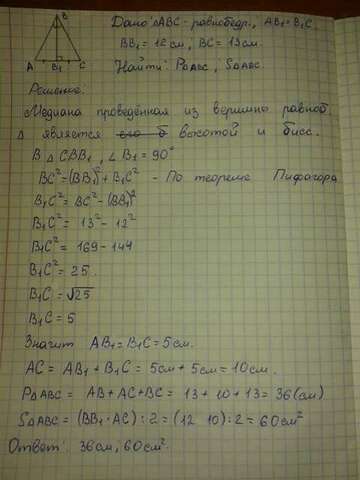 B
A B₁ C
Дано: △ABC - равнобедр., AB₁ = B₁C.
BB₁ = 12 см, BC = 13 см.
Найти: P△ABC, S△ABC.
Решение:
Медиана проведённая из вершины равноб.
△ является высотой и бисс.
В △CBB₁, ∠B₁ = 90°
BC² = (BB₁)² + B₁C² - По теореме Пифагора
B₁C² = BC² - (BB₁)²
B₁C² = 13² - 12²
B₁C² = 169 - 144
B₁C² = 25.
B₁C = √25
B₁C = 5
Значит AB₁ = B₁C = 5 см.
AC = AB₁ + B₁C = 5 см + 5 см = 10 см.
P△ABC = AB + AC + BC = 13 + 10 + 13 = 36 (см)
S△ABC = (BB₁ · AC) : 2 = (12 · 10) : 2 = 60 см²
Ответ: 36 см, 60 см².